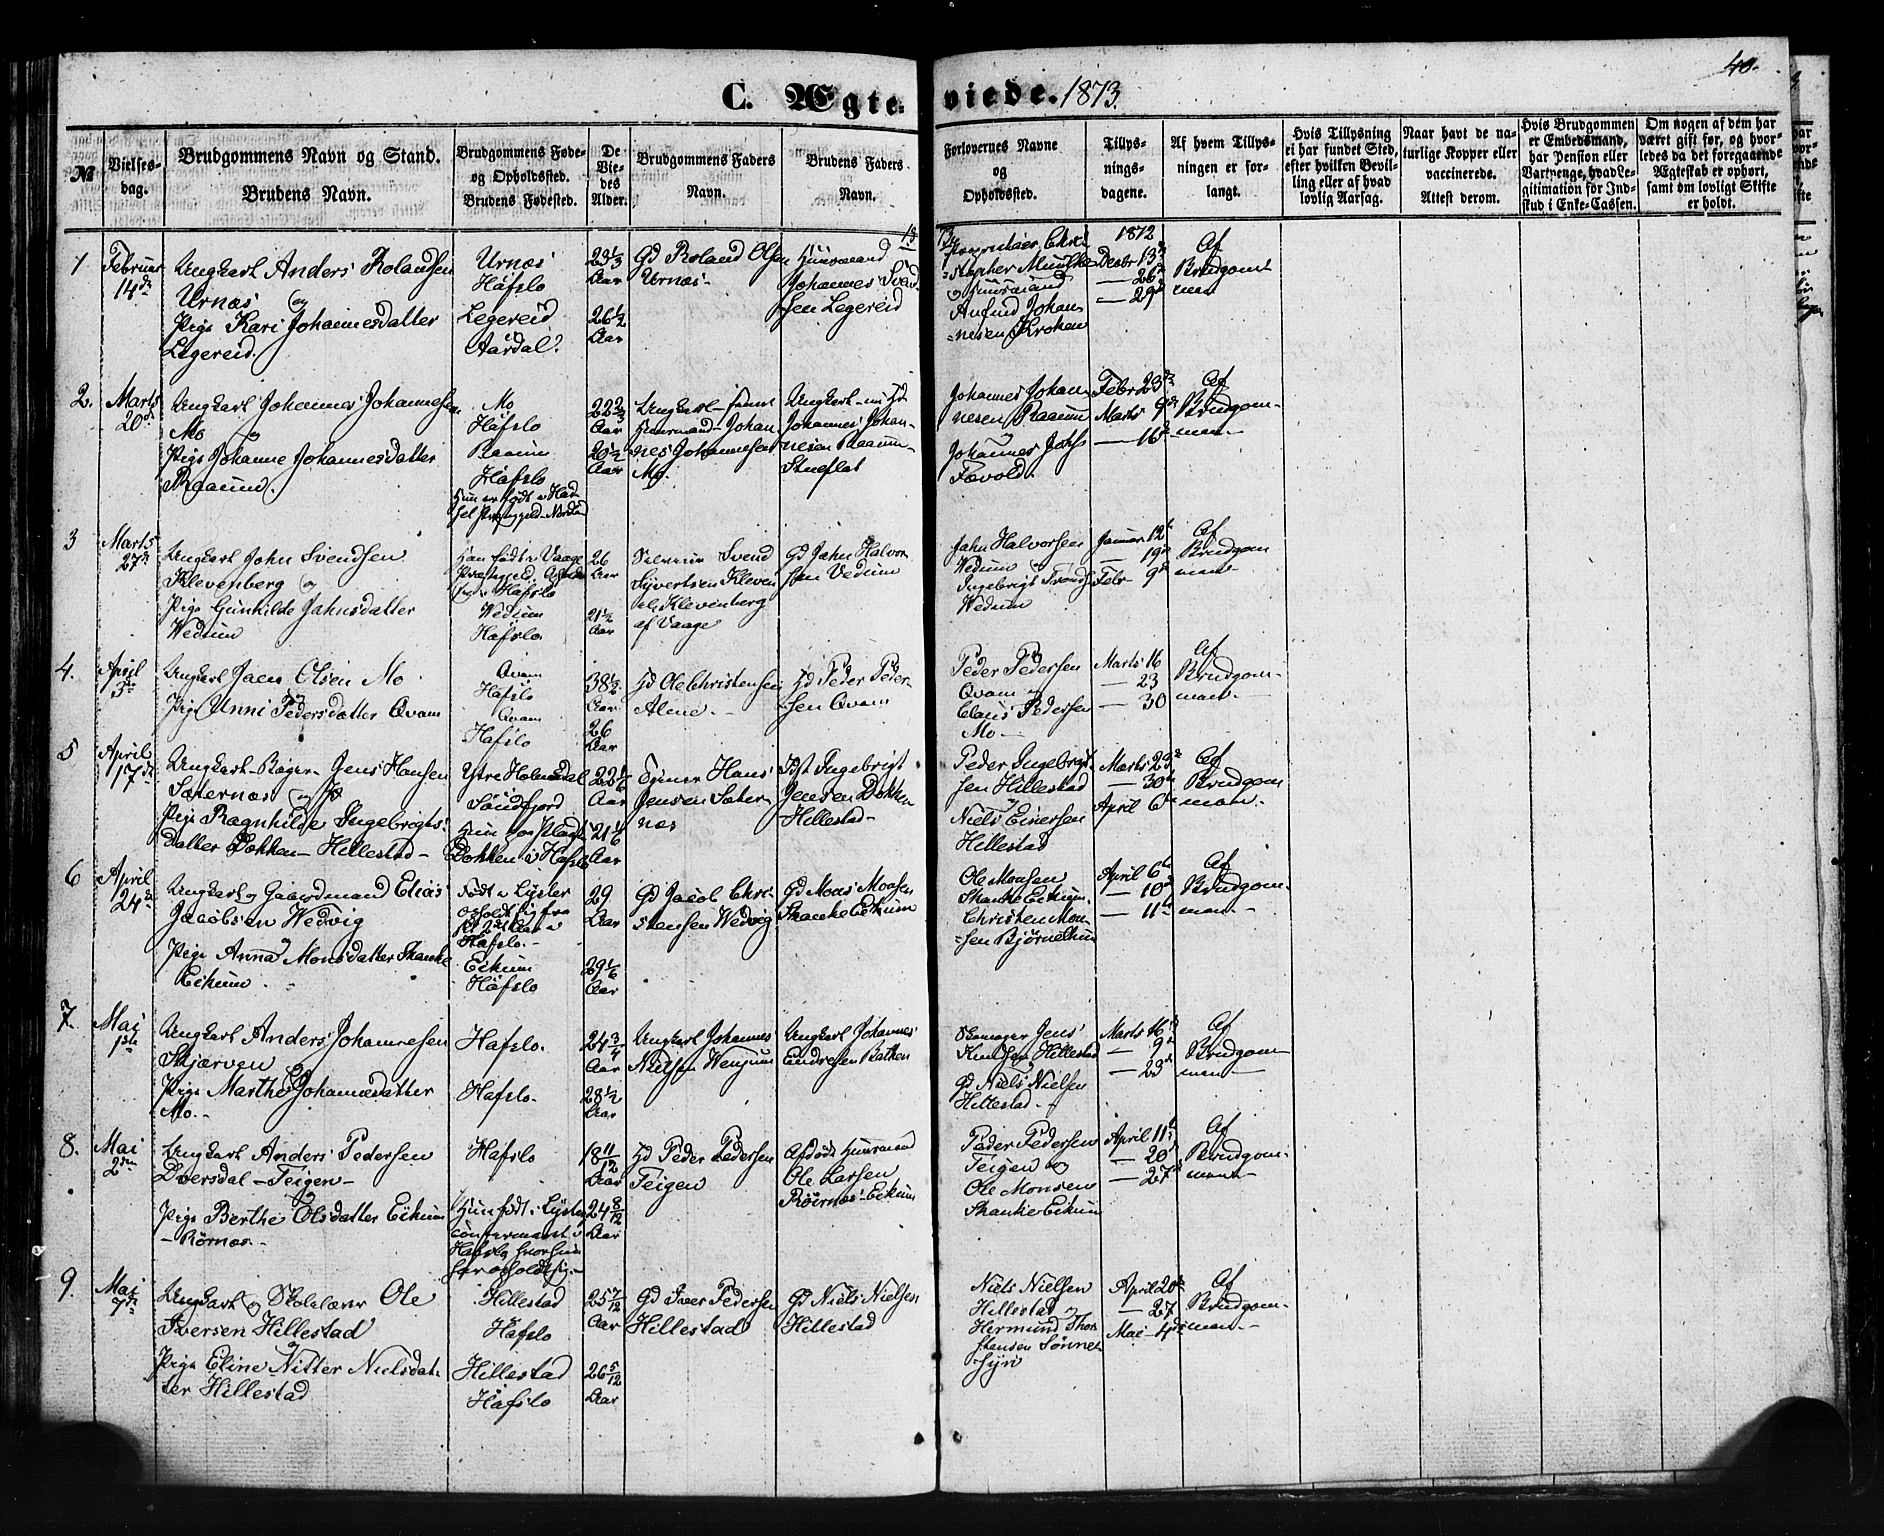 40.
C. Ægte-
viede. 1873.
№
Vielses-
dag.
Brudgommens Navn og Stand.
Brudens Navn.
Brudgommens Føde-
og Opholdssted.
Brudens Fødested.
De
Vie-
des
Alder.
Brudgommens Faders
Navn.
Brudens Faders
Navn.
Forlovernes Navne
og
Opholdssted.
Tillys-
nings-
dagene.
Af hvem Tillys-
ningen er for-
langt.
Hvis Tillysning
ei har fundet Sted,
efter hvilken Bevil-
ling eller af hvad
lovlig Aarsag.
Naar havt de na-
turlige Kopper eller
vaccinerede.
Attest derom.
Hvis Brudgommen
er Embedsmand,
har Pension eller
Vartpenge, hvad Le-
gitimation for Ind-
skud i Enke-Cassen.
Om nogen af dem har
været gift før, og hvor-
ledes da det foregaaende
Ægteskab er ophørt,
samt om lovligt Skifte
er holdt.
1
Februar
14de
Ungkarl Anders Rolandsen
Urnæs og
Pige Kari Johannesdatter
Legereid.
Urnæs
Hafslo
Legereid
i
Aardal.
Aar
26 1/2
Aar
Gd Roland Olsen
Urnæs
Huusmand
Johannes Svend-
sen Legereid
og Huusmand
Anfind Johan-
nesen Kroken
1872
Decbr 13de
— 26de
— 29de
Af
Brudgom-
men
2.
Marts
20de
Ungkarl Johannes Johannesen
Mo og
Pige Johanne Johannesdatter
Raaum.
Mo
Hafslo
Raaum
Hafslo
Hun er født i Had-
sel Nordland
22 2/3
Aar
20 1/2
Aar
Ungkarl
Huusmand Johan-
nes Johannesen
Mo.
Ungkarl
Johannes Johan-
nesen Raaum
Johannes Johan-
nesen Raaum
og
Johannes
Febr 23de
Marts 9de
— 16de
Af
Brudgom-
men
3
Marts
27de
Ungkarl John Svendsen
Klevenberg og
Pige Gunhilde Jahnsdatter
Wedum
Han født i Vaage
Hafslo
Wedum
Hafslo
26
Aar
21 1/2
Aar
Svend
Syvertsen Kleven
Klevenberg
af Vaage
Gd Jahn Halvor-
sen Vedum
Jahn Halvorsen
Wedum og
Ingebrigt
Wedum
Januar 12te
— 19de
Febr 9de
Af
Brudgom-
men
4.
April
3de
Ungkarl Jaen Olsen Mo
og
Pige Unni Pedersdatter Qvam
Qvam
Hafslo
Qvam
Hafslo
38 1/2
Aar
26
Aar
Hd Ole Christensen
Alene
Hd Peder Peder-
sen Qvam
Peder Pedersen
Qvam og
Claus Pedersen
Mo
Marts 16
— 23
— 30
Af
Brudgom-
men
5
April
17de
Ungkarl Bager Jens Hansen
Sæternæs og
Pige Ragnhilde Ingebrigts-
datter Dokken — Hillestad
Ytre Holmedal
Søndfjord
Dokken i Hafslo
22 1/6
Aar
21 1/6
Aar
Hans
Jensen Sæter-
næs
Ingebrigt
Jensen Dokken
Hillestad
Peder Ingebrigt-
sen Hillestad
og
Niels Einersen
Hillestad
Marts 23de
— 30te
April 6te
Af
Brudgom-
men
6
April
24de
Ungkarl og Gaardmand Elias
Jacobsen Wedvig
og
Pige Anna Monsdatter Skanke
Eikum
Født i Lyster
Hafslo
Eikum
Hafslo
29
Aar
29 1/6
Aar
Gd Jacob Chri-
stensen Wedvig
Gd Mons Monsen
Skanke Eikum
Ole Monsen
Skanke Eikum
Christen Mon-
sen
April 6te
— 10de
— 11te
Af
Brudgom-
men
7.
Mai
1ste
Ungkarl Anders Johannesen
Skjærven
og
Pige Marthe Johannesdatter
Mo.
Hafslo.
Hafslo.
24 3/4
Aar
28 1/2
Aar
Ungkarl Johannes
Nielsen
Ungkarl Johannes
Endresen
Skomager Jens
Knudsen Hillestad
og
Gd Niels Nielsen
Hillestad
Marts 16de
— 9de
— 23de
Af
Brudgom-
men
8.
Mai
2den
Ungkarl Anders Pedersen
Dversdal — Teigen
Pige Berthe Olsdatter Eikum
— Rørnæs
Hafslo
Hun født i Lyster
confirmeret i
Hafslo hvor hun
har opholdt sig.
18 11/12
Aar
Aar
Hd Peder Pedersen
Teigen
Afdøde Huusmand
Ole Larsen
Rørnæs Eikum
Peder Pedersen
Teigen og
Ole Monsen
Skanke Eikum
April 11te
— 20de
— 27de
Af
Brudgom-
men
9.
Mai
7de
Ungkarl og Skolelærer Ole
Iversen Hillestad
og
Pige Eline Nitter Nielsdat-
ter Hillestad
Hillestad
Hafslo
Hillestad
Hafslo
25 7/12
Aar
26 5/12
Aar
Gd Iver Pedersen
Hillestad
Gd Niels Nielsen
Hillestad
Niels Nielsen
Hillestad og
Hermund Thor-
stensen
April 20de
— 27
Mai 4de
Af
Brudgom-
men